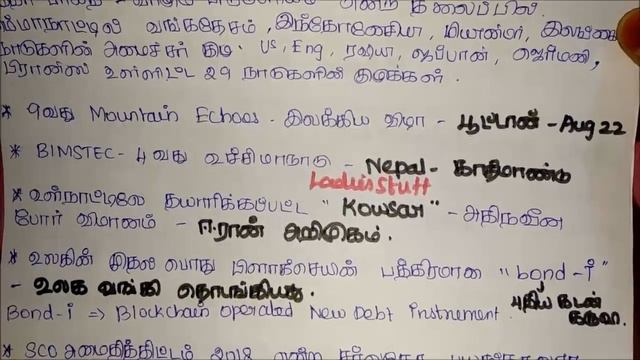 மாநாட்டில் வங்கதேசம், இந்தோனேசியா, மியான்மர், இலங்கை
நாடுகளின் அமைச்சர் குழு. US, Eng, ரஷியா, ஜப்பான், ஜெர்மனி,
பிரான்ஸ் உள்ளிட்ட 29 நாடுகளின் குழுக்கள்.
* 9வது Mountain Echoes - இலக்கிய விழா - பூட்டான் - Aug 22
* BIMSTEC - 4 வது உச்சிமாநாடு - Nepal - காத்மாண்டு
Ladiis Stuff
* உள்நாட்டிலே தயாரிக்கப்பட்ட "Kowsar" - அதிநவீன
போர் விமானம் - ஈரான் அறிமுகம்.
* உலகின் முதல் பொது பிளாக்செயின் பத்திரமான "bond-i"
- உலக வங்கி தொடங்கியது.
Bond-i => Blockchain Operated New Debt Instrument. புதிய கடன் கருவி.
* SCO அமைதித்திட்டம் 2018 என்ற